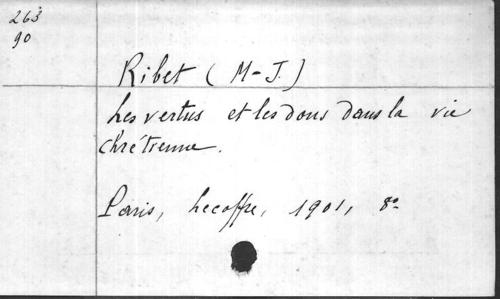 263
90
Ribet (M-J.)
Les vertus et les dons dans la vie
chrétienne.
Paris, Lecoffre, 1901, 8º